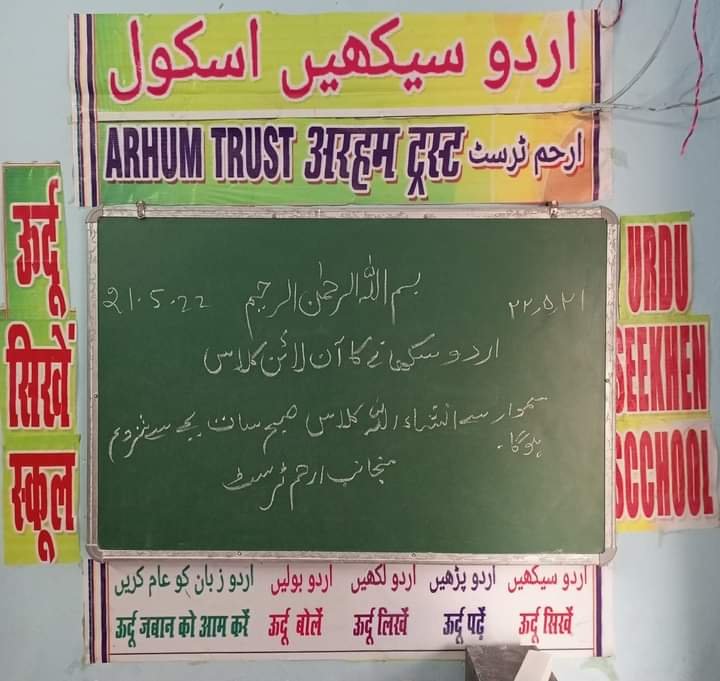 اردو سیکھیں اسکول
ARHUM TRUST अरहम ट्रस्ट ارحم ٹرسٹ
ऊर्दू
सिखें
स्कूल
21.5.22 بسم اللہ الرحمٰن الرحیم ۲۲٫۵٫۲۱
اردو سکھانے کا آن لائن کلاس
سموار سے انشاء اللہ کلاس صبح سات بجے سے شروع
ہوگا۔
منجانب ارحم ٹرسٹ
URDU
SEEKHEN
SCCHOOL
اردو سیکھیں اردو پڑھیں اردو لکھیں اردو بولیں اردو زبان کو عام کریں
ऊर्दू जबान को आम करें ऊर्दू बोलें ऊर्दू लिखें ऊर्दू पढ़ें ऊर्दू सिखें